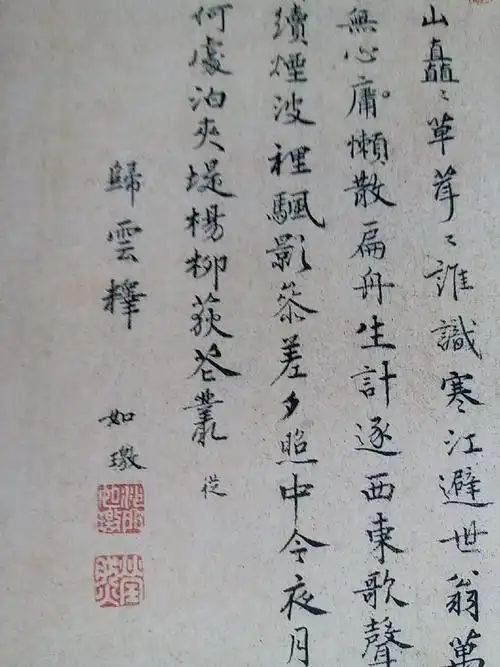 山矗〻草茸〻誰識寒江避世翁萬
無心庸懶散扁舟生計逐西東歌聲
續煙波裡颿影叅差夕照中今夜月
何處泊夾堤楊柳荻花叢 從
歸雲釋 如璬